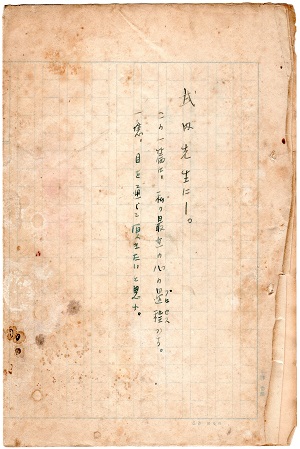 武田先生に―。
この一篇は、私の最近の心の過程プロセスである。
一應、目を通して頂きたいと思ふ。